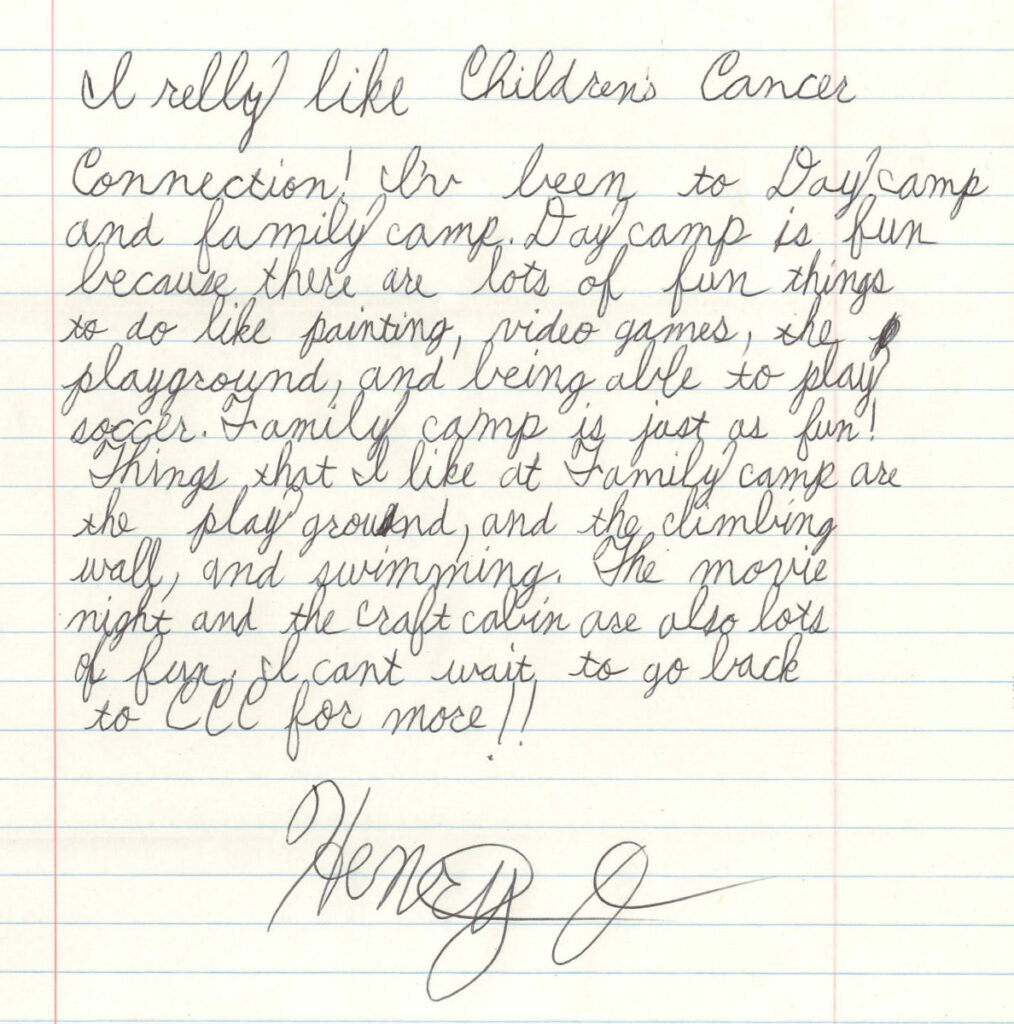 I relly like Children's Cancer
Connection! I'v been to Day camp
and family camp. Day camp is fun
because there are lots of fun things
to do like painting, video games, the
playground, and being able to play
soccer. Family camp is just as fun!
Things that I like at Family camp are
the play ground, and the climbing
wall, and swimming. The movie
night and the craft cabin are also lots
of fun. I cant wait to go back
to CCC for more!!
Henry J